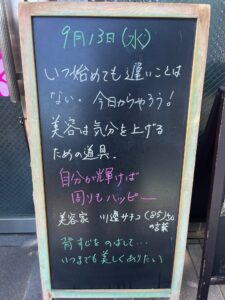 9月13日(水)
いつ始めても遅いことは
ない。今日からやろう!
美容は気分を上げる
ための道具。
自分が輝けば
周りもハッピー
美容家 川邊サチコ(85)さん
の言葉
背すじをのばして…
いつまでも美しくありたい